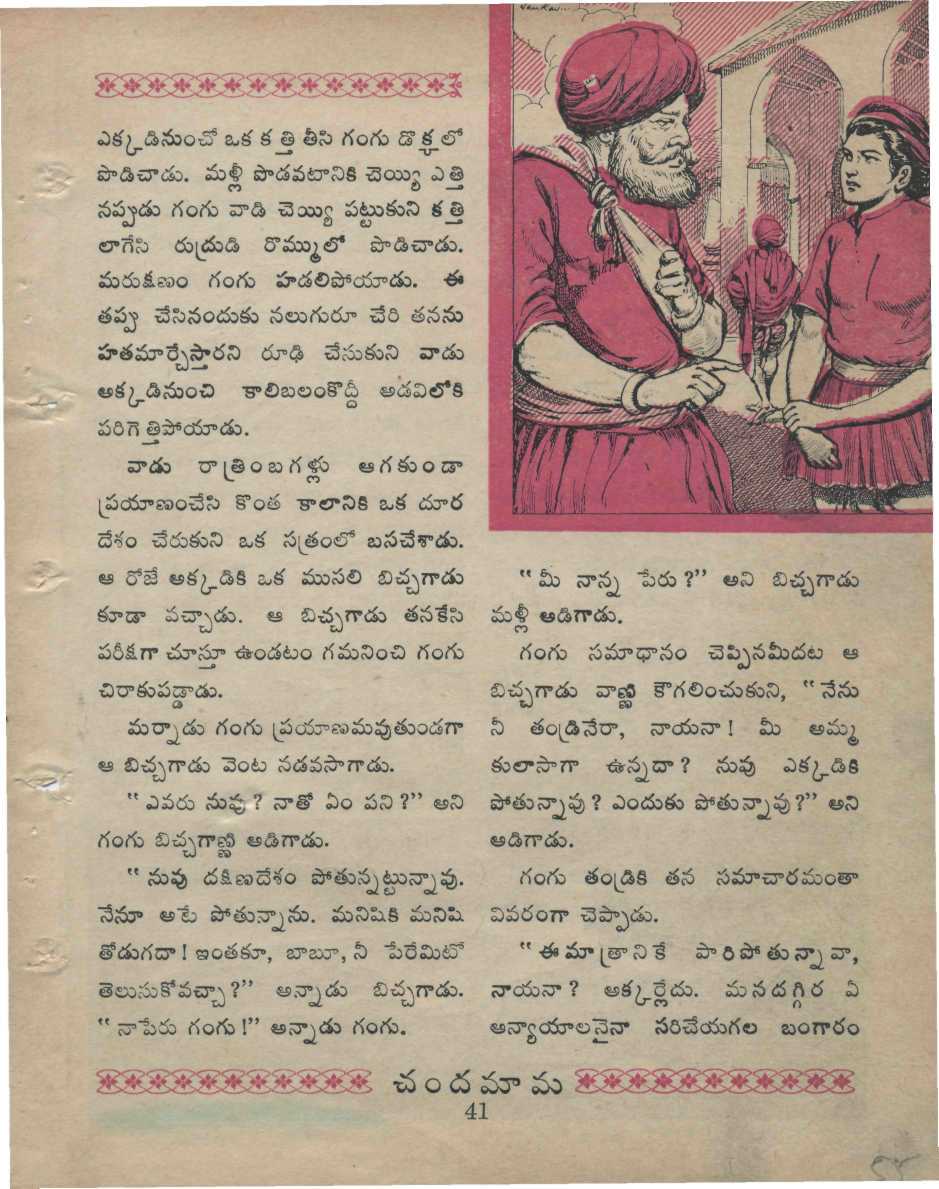 ఎక్కడినుంచో ఒక కత్తి తీసి గంగు డొక్కలో
పొడిచాడు. మళ్లీ పొడవటానికి చెయ్యి ఎత్తి
నప్పుడు గంగు వాడి చెయ్యి పట్టుకుని కత్తి
లాగేసి రుద్రుడి రొమ్ములో పొడిచాడు.
మరుక్షణం గంగు హడలిపోయాడు. ఈ
తప్పు చేసినందుకు నలుగురూ చేరి తనను
హతమార్చేస్తారని రూఢి చేసుకుని వాడు
అక్కడినుంచి కాలిబలంకొద్దీ అడవిలోకి
పరిగెత్తిపోయాడు.
వాడు రాత్రింబగళ్లు ఆగకుండా
ప్రయాణంచేసి కొంత కాలానికి ఒక దూర
దేశం చేరుకుని ఒక సత్రంలో బసచేశాడు.
ఆ రోజే అక్కడికి ఒక ముసలి బిచ్చగాడు
కూడా వచ్చాడు. ఆ బిచ్చగాడు తనకేసి
పరీక్షగా చూస్తూ ఉండటం గమనించి గంగు
చిరాకుపడ్డాడు.
మర్నాడు గంగు ప్రయాణమవుతుండగా
ఆ బిచ్చగాడు వెంట నడవసాగాడు.
“ఎవరు నువు? నాతో ఏం పని?” అని
గంగు బిచ్చగాణ్ణి అడిగాడు.
“నువు దక్షిణదేశం పోతున్నట్టున్నావు.
నేనూ అటే పోతున్నాను. మనిషికి మనిషి
తోడుగదా! ఇంతకూ, బాబూ, నీ పేరేమిటో
తెలుసుకోవచ్చా?” అన్నాడు బిచ్చగాడు.
“నాపేరు గంగు!” అన్నాడు గంగు.
“మీ నాన్న పేరు?” అని బిచ్చగాడు
మళ్లీ అడిగాడు.
గంగు సమాధానం చెప్పినమీదట ఆ
బిచ్చగాడు వాణ్ణి కౌగలించుకుని, “నేను
నీ తండ్రినేరా, నాయనా! మీ అమ్మ
కులాసాగా ఉన్నదా? నువు ఎక్కడికి
పోతున్నావు? ఎందుకు పోతున్నావు?” అని
అడిగాడు.
గంగు తండ్రికి తన సమాచారమంతా
వివరంగా చెప్పాడు.
“ఈమాత్రానికే పారిపోతున్నావా,
నాయనా? అక్కర్లేదు. మనదగ్గిర ఏ
అన్యాయాలనైనా సరిచేయగల బంగారం
చందమామ
41